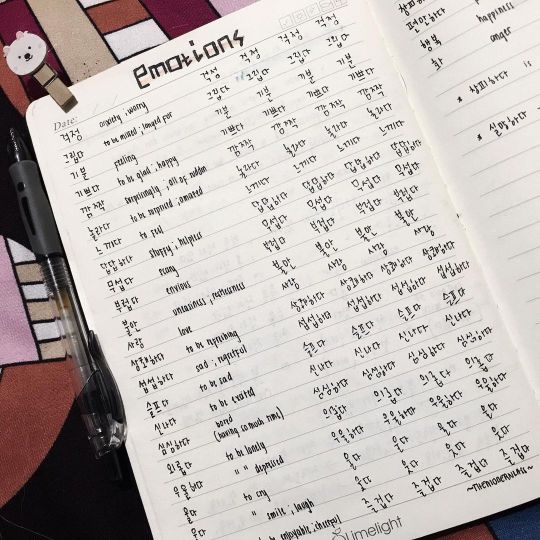 emotions
Date:
걱정 anxiety, worry 걱정 걱정 걱정 걱정
그립다 to be missed, longed for 그립다 그립다 그립다 그립다
기분 feeling 기분 기분 기분 기분
기쁘다 to be glad, happy 기쁘다 기쁘다 기쁘다 기쁘다
깜짝 surprisingly, all of sudden 깜짝 깜짝 깜짝 깜짝
놀라다 to be surprised, amazed 놀라다 놀라다 놀라다 놀라다
느끼다 to feel 느끼다 느끼다 느끼다 느끼다
답답하다 stuffy, helpless 답답하다 답답하다 답답하다 답답하다
무섭다 scary 무섭다 무섭다 무섭다 무섭다
부럽다 envious 부럽다 부럽다 부럽다 부럽다
불안 uneasiness, restlessness 불안 불안 불안 불안
사랑 love 사랑 사랑 사랑 사랑
상쾌하다 to be refreshing 상쾌하다 상쾌하다 상쾌하다 상쾌하다
섭섭하다 sad, regretful 섭섭하다 섭섭하다 섭섭하다 섭섭하다
슬프다 to be sad 슬프다 슬프다 슬프다 슬프다
신나다 to be excited 신나다 신나다 신나다 신나다
심심하다 bored (having so much time) 심심하다 심심하다 심심하다 심심하다
외롭다 to be lonely 외롭다 외롭다 외롭다 외롭다
우울하다 " " depressed 우울하다 우울하다 우울하다 우울하다
울다 to cry 울다 울다 울다 울다
웃다 " smile, laugh 웃다 웃다 웃다 웃다
to be enjoyable, cheerful 즐겁다 즐겁다 즐겁다 즐겁다
limelight
창피하다
편안하다
행복 happiness
화 anger
* 창피하다 is
* 실망하다